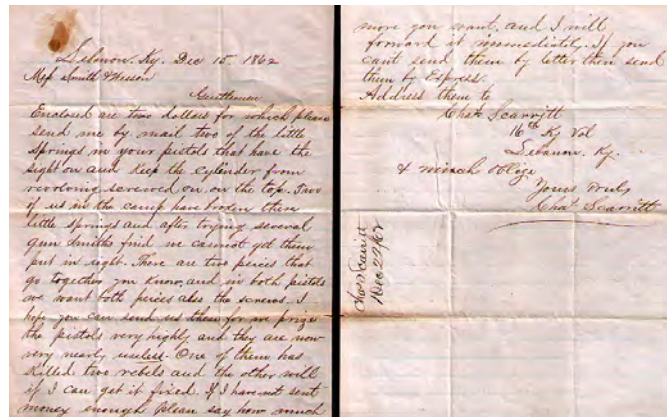 Lebanon. Ky. Dec 15. 1862
Mess Smith & Wesson
Gentlemen
Enclosed are two dollars for which please
send me by mail two of the little
springs in your pistols that have the
sight on and keep the cylender from
revolving screwed on on the top. Two
of us in the camp have broken them
little springs and after trying several
gun smiths find we cannot get them
put in right. There are two peices that
go together you know, and in both pistols
we want both peices also the screws. I
hope you can send us them for we prize
the pistols very highly and they are now
very nearly useless. One of them has
killed two rebels and the other will
if I can get it fixed. If I have not sent
money enough please say how much
more you want, and I will
forward it immediately. If you
cant send them by letter then send
them by Express.
Address them to
Chas Scarritt
16th Ky Vol
Lebanon. Ky.
& much oblige
Yours truly
Chas. Scarritt
Chas Scarritt
Dec 22/62